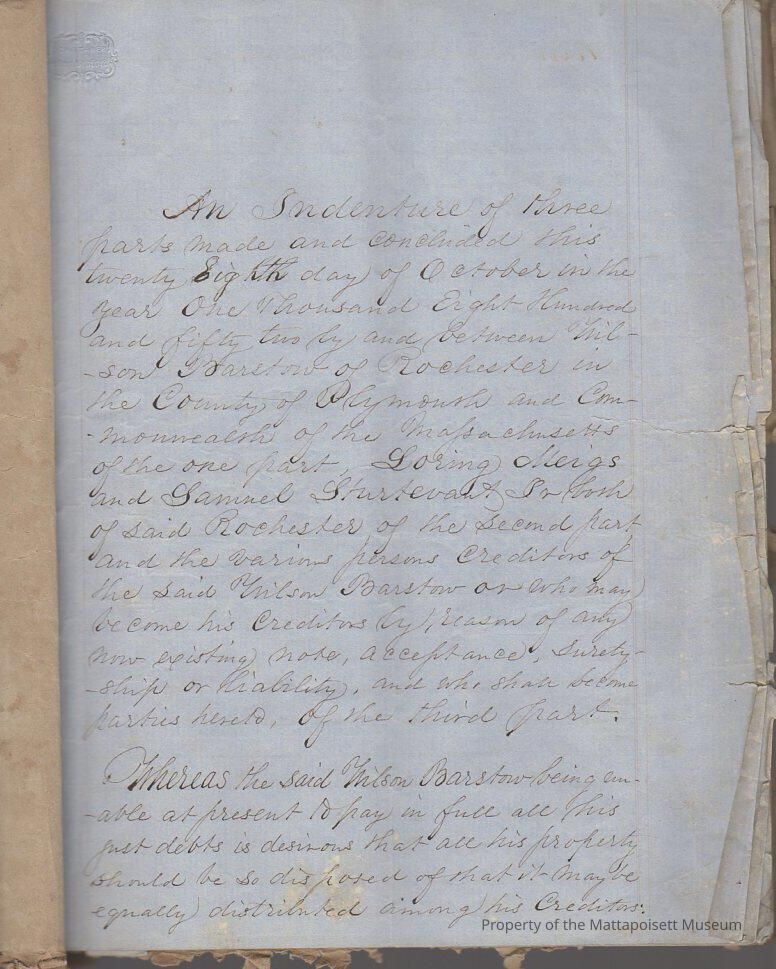 An Indenture of three
parts made and concluded this
twenty Eighth day of October in the
year One Thousand Eight Hundred
and fifty two by and between Wil-
-son Barstow of Rochester in
the County of Plymouth and Com-
-monwealth of the Massachusetts
of the one part, Loring Meigs
and Samuel Sturtevant Jr both
of said Rochester of the second part
and the various persons Creditors of
the said Wilson Barstow or who may
become his Creditors by reason of any
now existing note, acceptance, surety-
-ship or liability, and who shall become
parties hereto, of the third part.
Whereas the said Wilson Barstow being un-
-able at present to pay in full all his
just debts is desirous that all his property
should be so disposed of that it may be
equally distributed among his Creditors:
Property of the Mattapoisett Museum